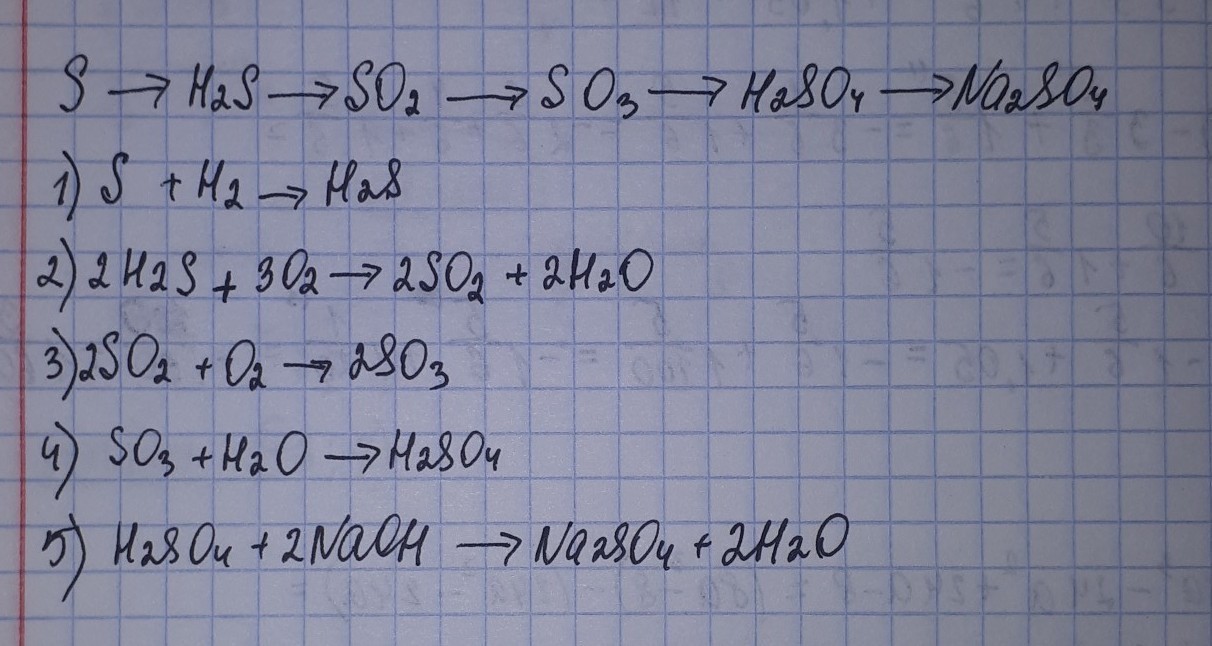 S → H₂S → SO₂ → SO₃ → H₂SO₄ → Na₂SO₄
1) S + H₂ → H₂S
2) 2H₂S + 3O₂ → 2SO₂ + 2H₂O
3) 2SO₂ + O₂ → 2SO₃
4) SO₃ + H₂O → H₂SO₄
5) H₂SO₄ + 2NaOH → Na₂SO₄ + 2H₂O